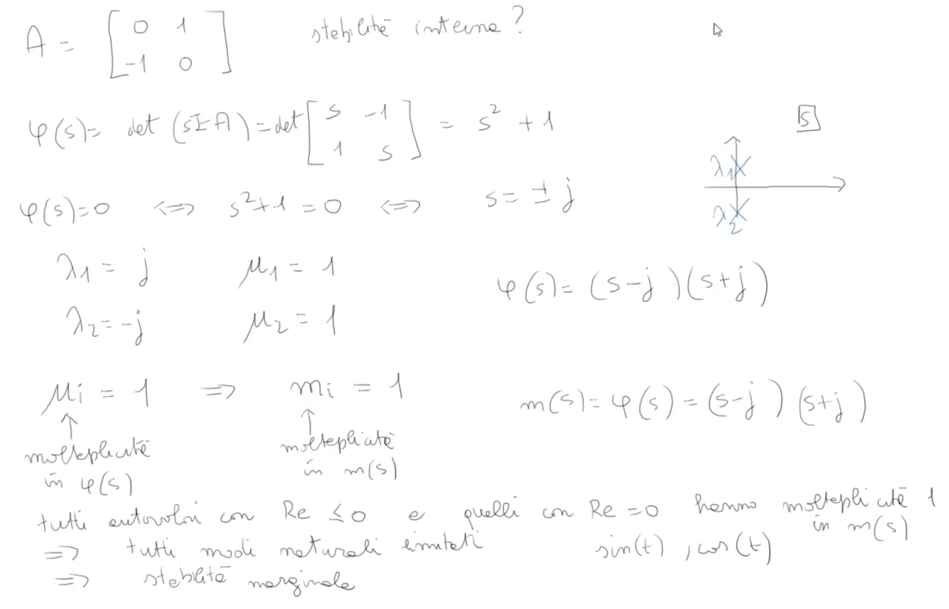 A = [ 0 1 ; -1 0 ] stabilità interna?
φ(s)= det (sI-A) = det [ s -1 ; 1 s ] = s² + 1
φ(s)=0 <=> s²+1 = 0 <=> s = ± j
s
λ1
λ2
λ1 = j μ1 = 1
λ2 = -j μ2 = 1
φ(s)= (s-j)(s+j)
μi = 1 => mi = 1
m(s) = φ(s) = (s-j)(s+j)
↑ ↑
molteplicità molteplicità
in φ(s) in m(s)
tutti autovalori con Re ≤ 0 e quelli con Re = 0 hanno molteplicità 1
in m(s)
=> tutti modi naturali limitati sin(t), cos(t)
=> stabilità marginale